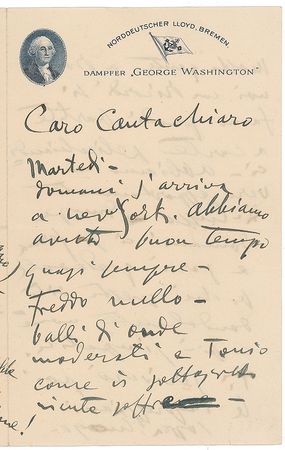 NORDDEUTSCHER LLOYD, BREMEN
DAMPFER „GEORGE WASHINGTON"
Caro Cantachiaro
Martedì -
domani s'arriva
a new York. abbiamo
avuto buon tempo
quasi sempre -
freddo nullo -
balli di onde
moderati e Tonio
come il sottoscritto
niente